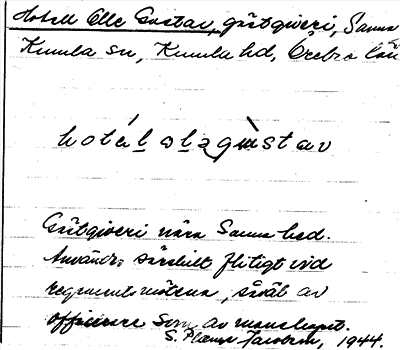 Hotell Olle Gustav, gästgiveri, Sanna
Kumla sn, Kumla hd, Örebro län
hotél olagùstav
Gästgiveri nära Sanna hed.
Användes särskilt flitigt vid
regementsmötena, såväl av
officerare som av manskapet.
S. Jacobson, 1944.